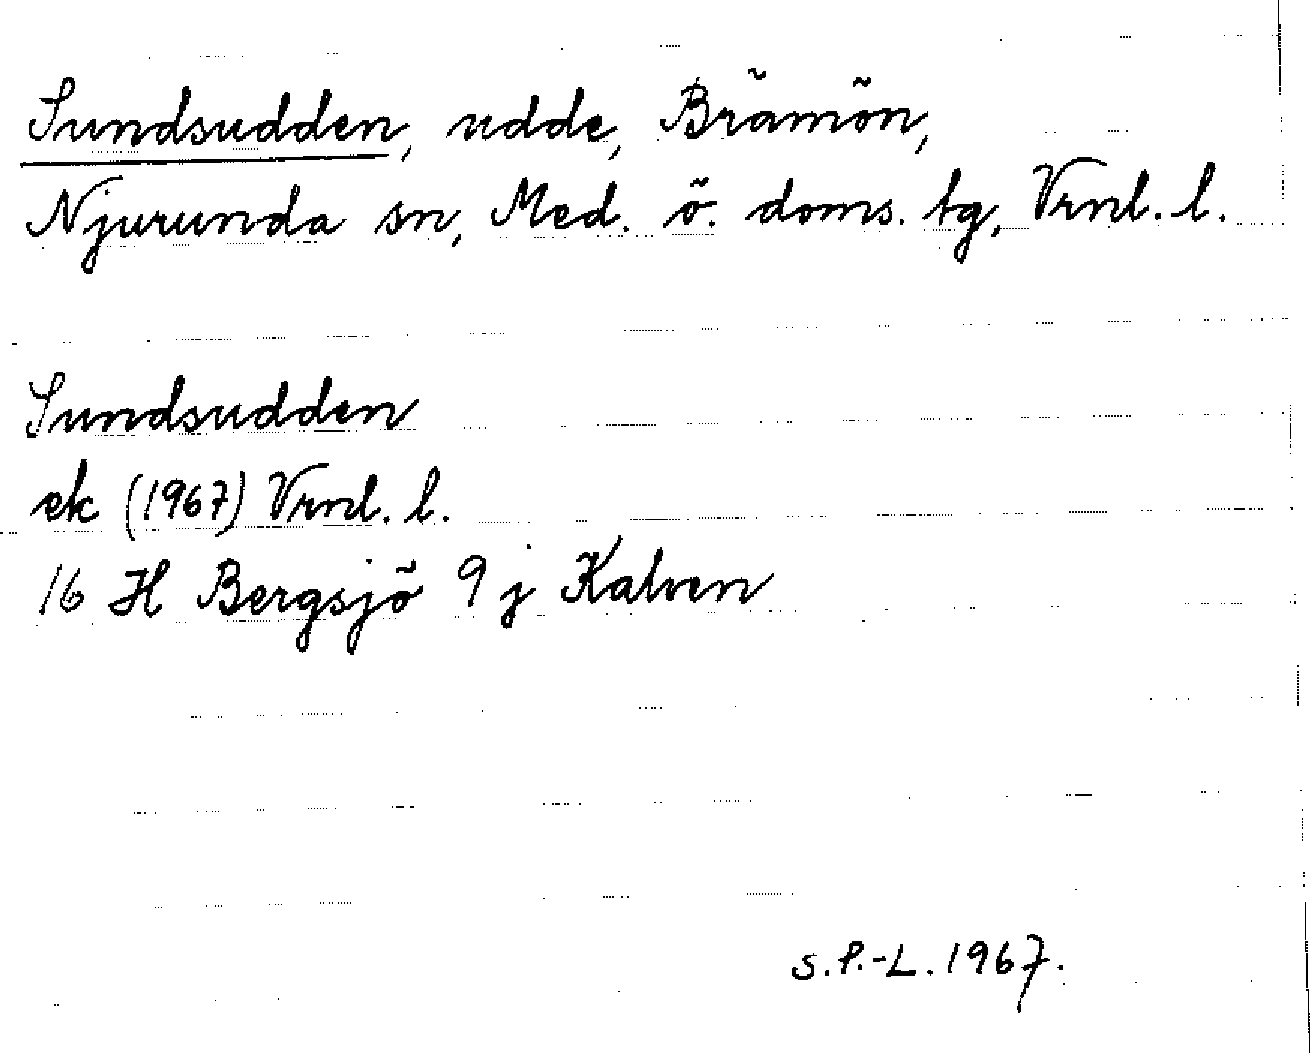 Sundsudden, udde, Brämön,
Njurunda sn, Med. ö. doms. tg, Vrnl. l.
Sundsudden
ek (1967) Vrnl. l.
16 H Bergsjö 9 j Kalven
S.P.-L. 1967.